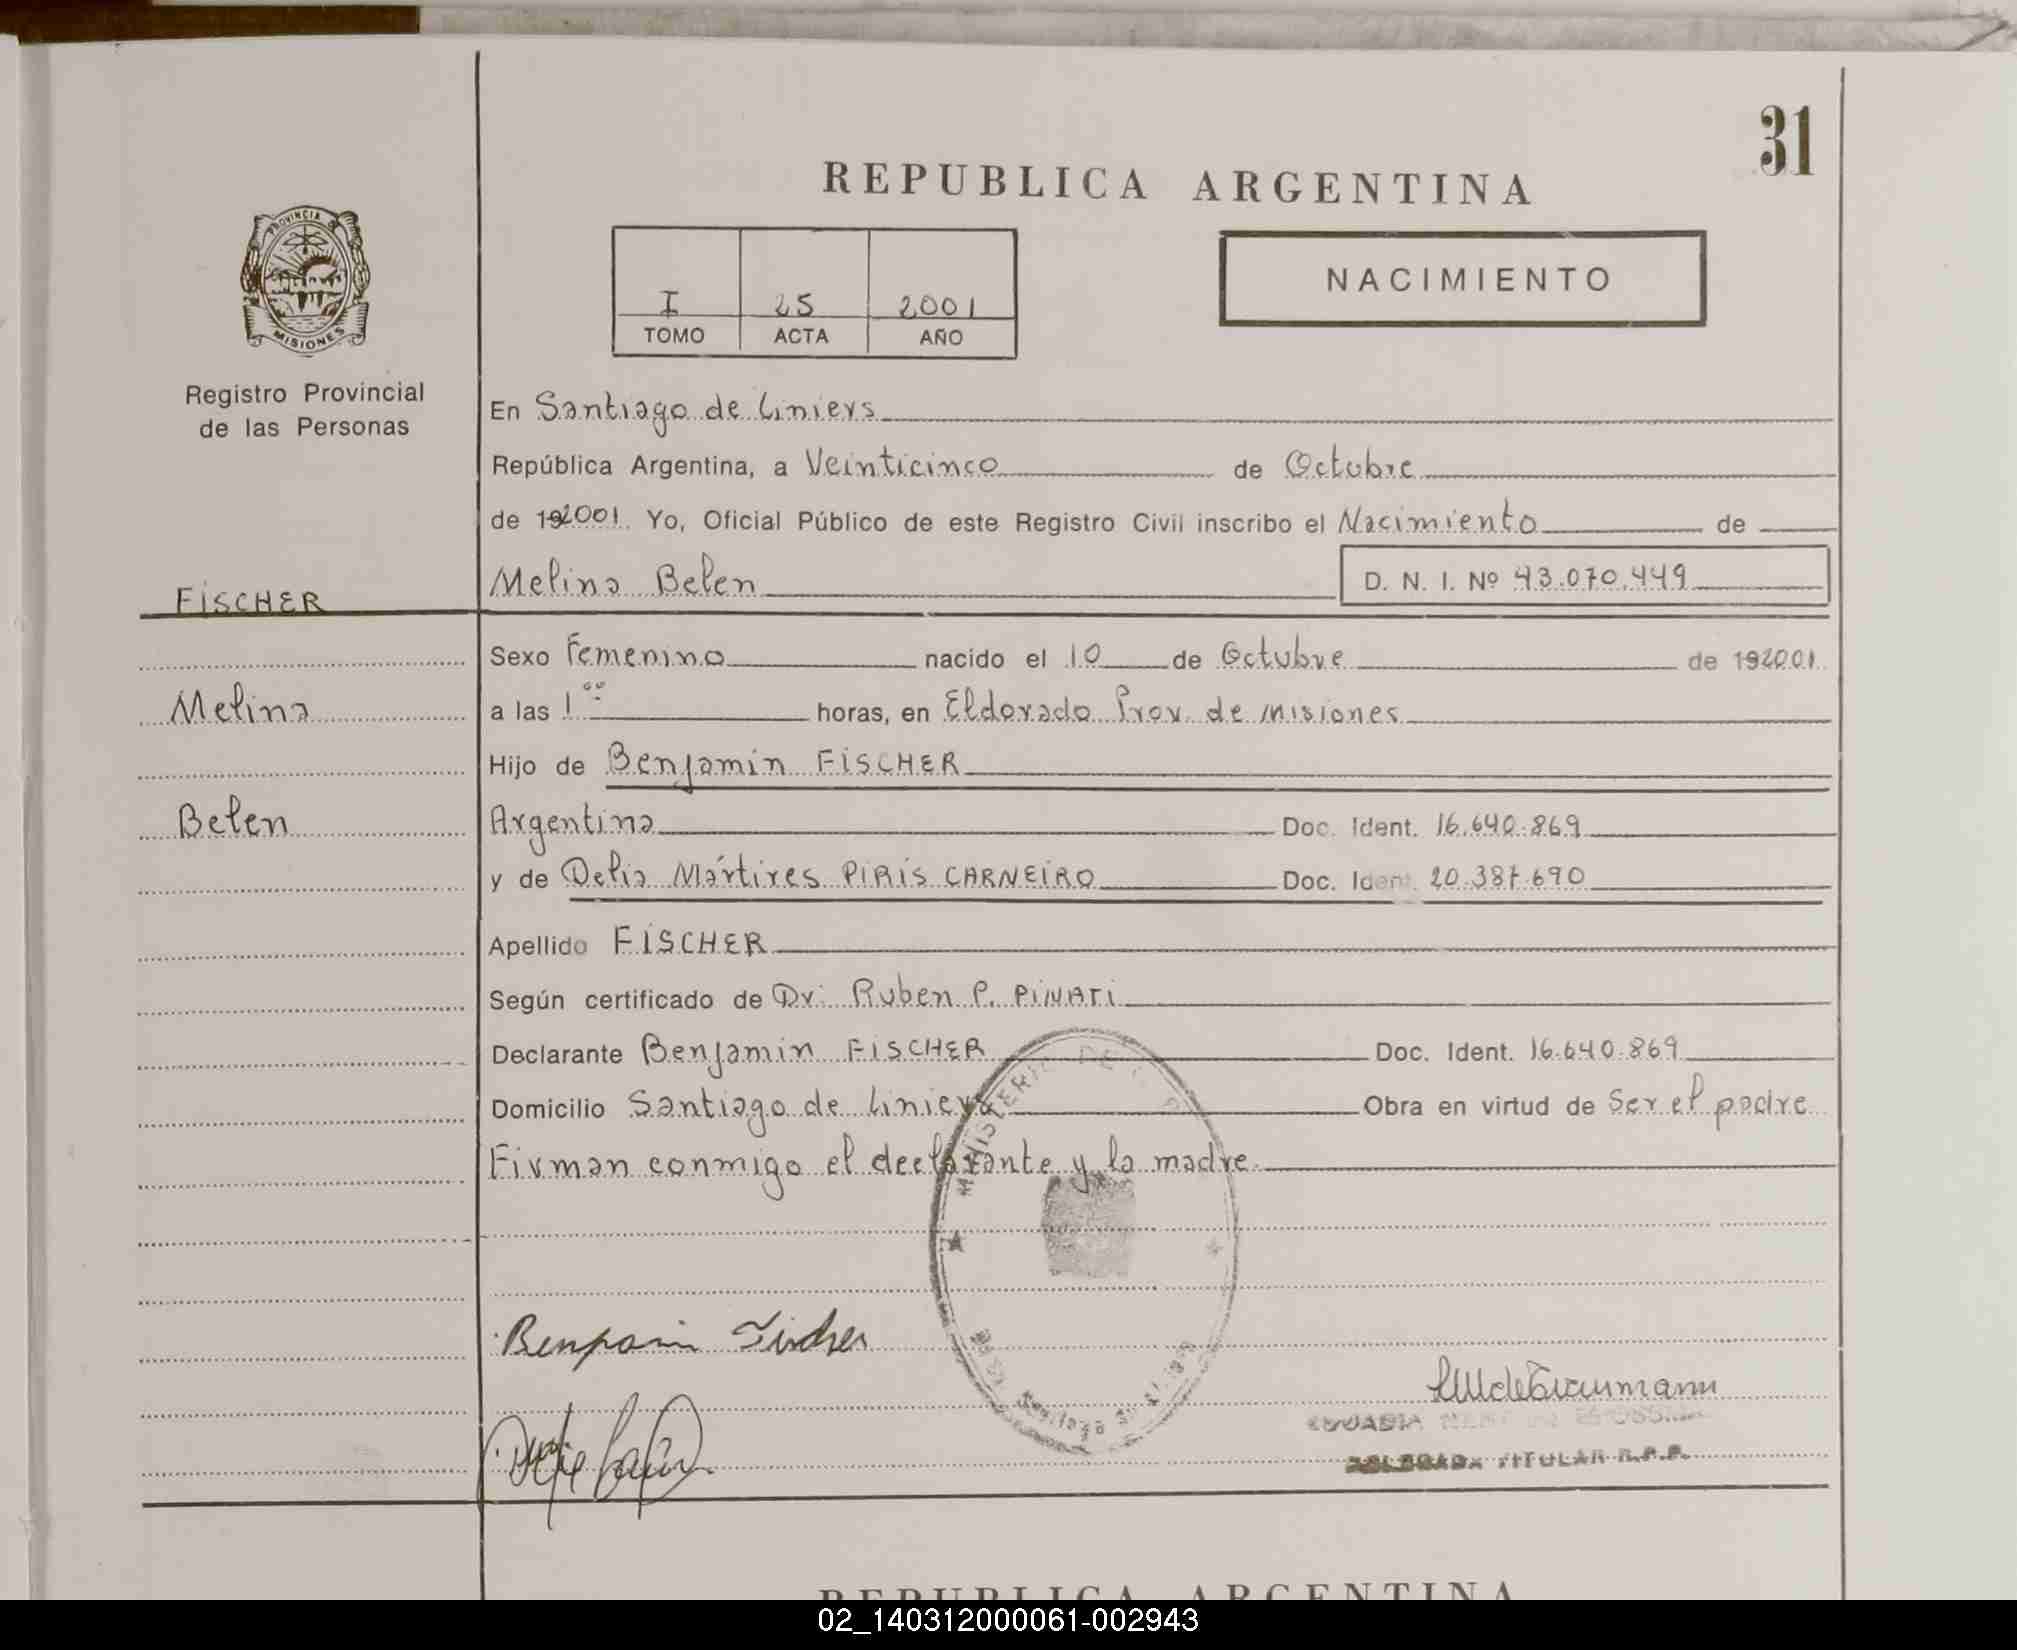 31
REPUBLICA ARGENTINA
PROVINCIA
MISIONES
I 25 2001
TOMO ACTA AÑO
NACIMIENTO
Registro Provincial
de las Personas
En Santiago de Liniers
República Argentina, a Veinticinco de Octubre
de 192001. Yo, Oficial Público de este Registro Civil inscribo el Nacimiento de
FISCHER
Melina Belen D. N. I. Nº 43.070.449
Sexo Femenino nacido el 10 de Octubre de 192001
Melina
a las 1 00 horas, en Eldorado Prov. de Misiones
Hijo de Benjamin FISCHER
Belen
Argentina Doc. Ident. 16.640.869
y de Delia Mártires PIRIS CARNEIRO Doc. Ident. 20.387.690
Apellido FISCHER
Según certificado de Dr. Ruben P. PINATI
Declarante Benjamin FISCHER Doc. Ident. 16.640.869
Domicilio Santiago de Liniers Obra en virtud de Ser el padre
Firman conmigo el declarante y la madre
MINISTERIO DE
Benjamin Fischer
DELEGADA TITULAR R.P.P.
REPUBLICA ARGENTINA
02_140312000061-002943